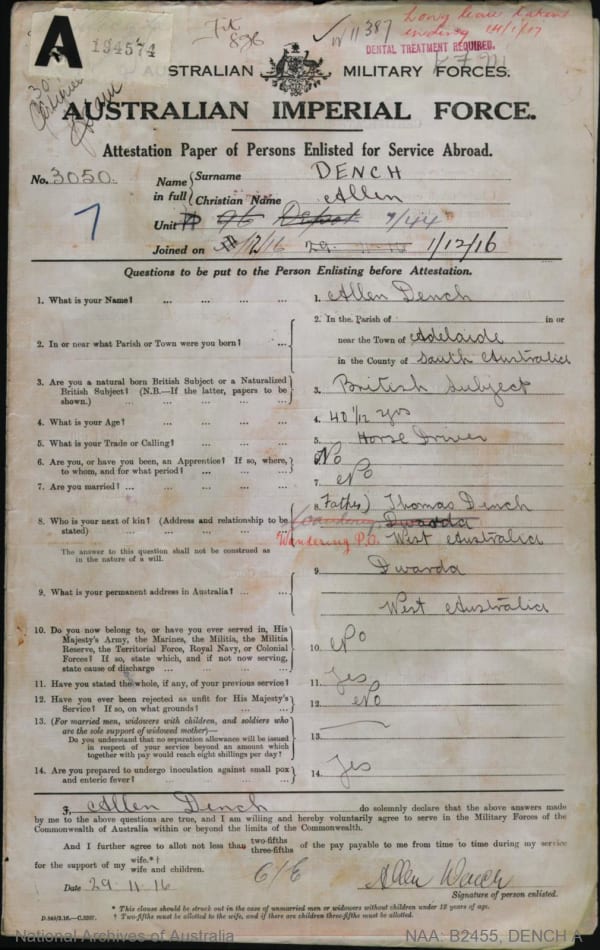 A
194574
Fit
11387
Long leave taken
ending 14/1/17
DENTAL TREATMENT REQUIRED.
AUSTRALIAN MILITARY FORCES.
AUSTRALIAN IMPERIAL FORCE.
Attestation Paper of Persons Enlisted for Service Abroad.
No. 3050.
Name in full
Surname DENCH
Christian Name Allen
7
Unit 96 Depot 7/44
Joined on 1/12/16 29. 1/12/16
Questions to be put to the Person Enlisting before Attestation.
1. What is your Name? ... ... ... ... 1. Allen Dench
2. In or near what Parish or Town were you born? ...
2. In the Parish of in or
near the Town of Adelaide
in the County of South Australia
3. Are you a natural born British Subject or a Naturalized
British Subject? (N.B.—If the latter, papers to be
shown.) ... ... ... ... 3. British Subject
4. What is your Age? ... ... ... ... 4. 40 1/12 yrs
5. What is your Trade or Calling? ... ... ... 5. Horse Driver
6. Are you, or have you been, an Apprentice? If so, where,
to whom, and for what period? ... ... ... 6. No
7. Are you married? ... ... ... ... 7. No
8. Who is your next of kin? (Address and relationship to be
stated) ... ... ... ...
8. Father) Thomas Dench
Wandering Dwarda
Wandering P.O. West Australia
The answer to this question shall not be construed as
in the nature of a will.
9. What is your permanent address in Australia? ... ...
9. Dwarda
West Australia
10. Do you now belong to, or have you ever served in, His
Majesty's Army, the Marines, the Militia, the Militia
Reserve, the Territorial Force, Royal Navy, or Colonial
Forces? If so, state which, and if not now serving,
state cause of discharge ... ... ... ... 10. No
11. Have you stated the whole, if any, of your previous service? 11. Yes
12. Have you ever been rejected as unfit for His Majesty's
Service? If so, on what grounds? ... ... 12. No
13. (For married men, widowers with children, and soldiers who
are the sole support of widowed mother)—
Do you understand that no separation allowance will be issued
in respect of your service beyond an amount which
together with pay would reach eight shillings per day? 13.
14. Are you prepared to undergo inoculation against small pox
and enteric fever? ... ... ... ... 14. Yes
I, Allen Dench do solemnly declare that the above answers made
by me to the above questions are true, and I am willing and hereby voluntarily agree to serve in the Military Forces of the
Commonwealth of Australia within or beyond the limits of the Commonwealth.
And I further agree to allot not less than two-fifths three-fifths of the pay payable to me from time to time during my service
for the support of my wife.*† wife and children.
Date 29.11.16
Allen Dench
Signature of person enlisted.
* This clause should be struck out in the case of unmarried men or widowers without children under 18 years of age.
† Two-fifths must be allotted to the wife, and if there are children three-fifths must be allotted.
National Archives of Australia
NAA: B2455, DENCH A